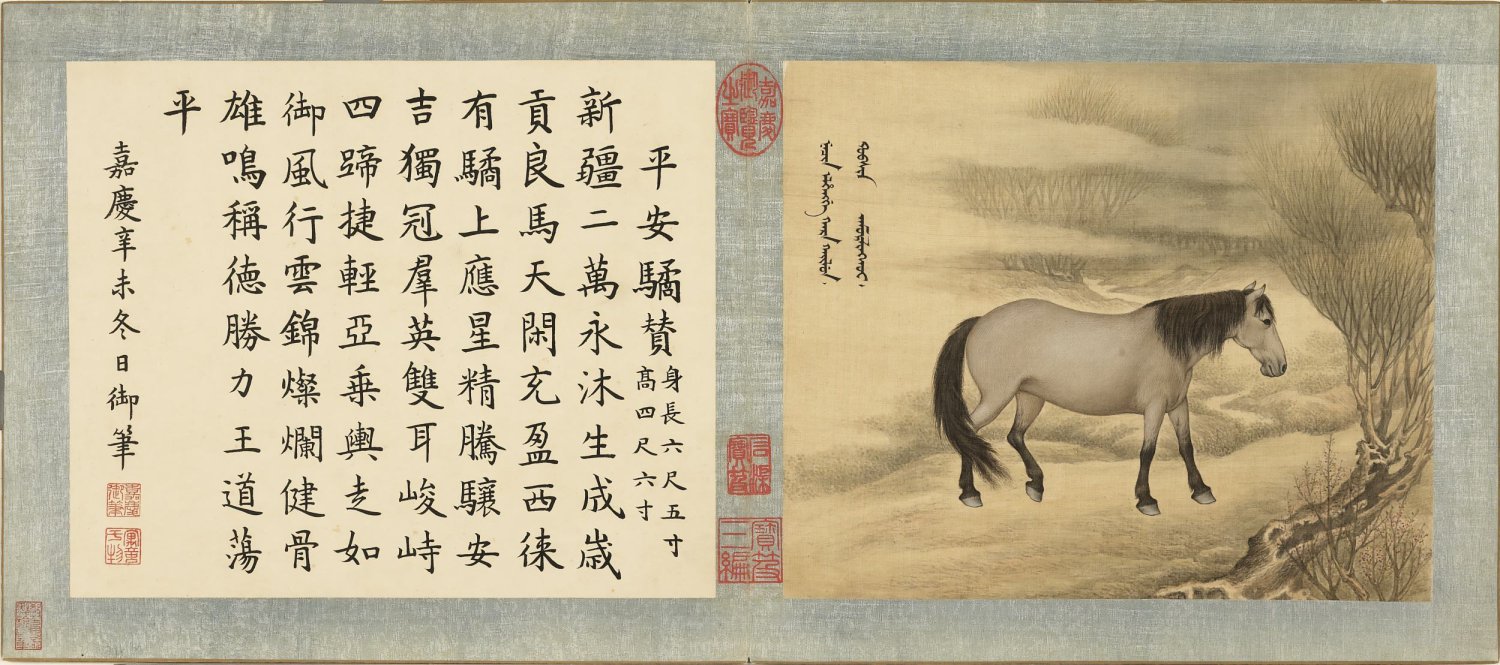 平安驈贊
身長六尺五寸
高四尺六寸
新疆二萬永沐生成歲
貢良馬天閑充盈西徠
有驈上應星精騰驤安
吉獨冠羣英雙耳峻峙
四蹄捷輕亞乗輿走如
御風行雲錦燦爛健骨
雄鳴稱德勝力王道蕩
平
嘉慶辛未冬日御筆
嘉慶御筆
嘉慶御覽之寶
石渠寶笈
寶笈三編